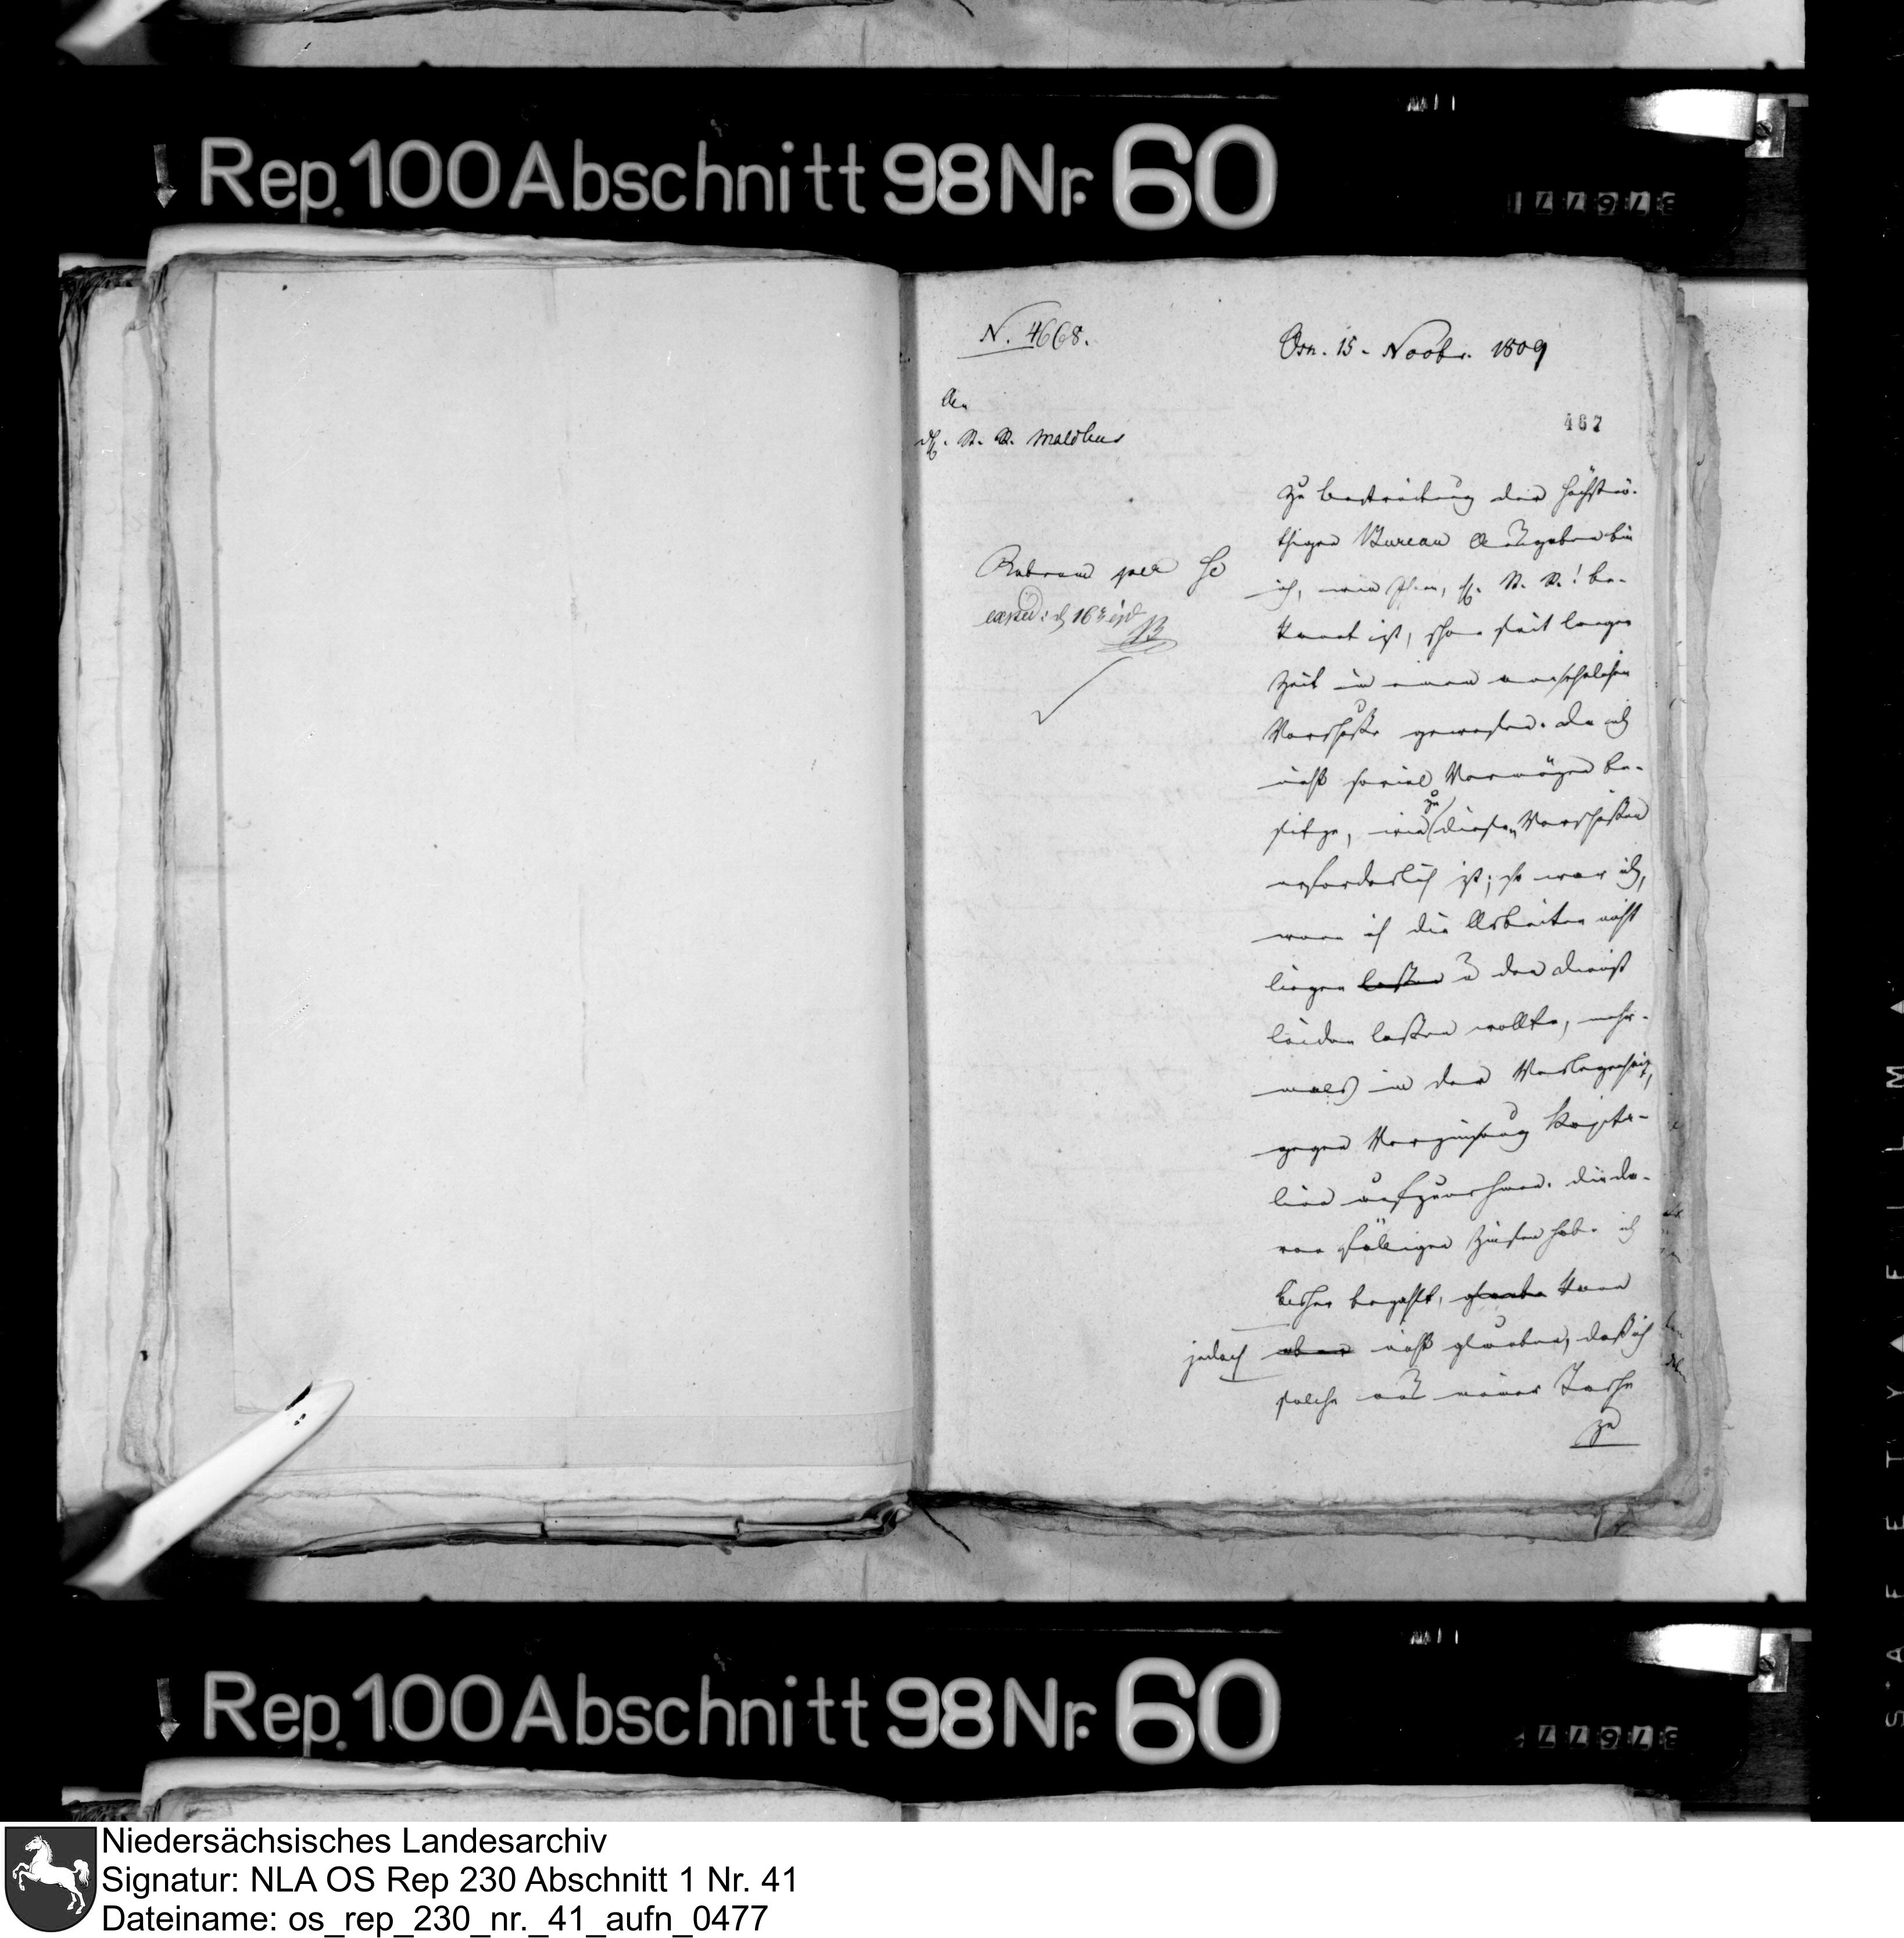 Rep. 100 Abschnitt 98 Nr. 60
N. 4668.
Osn. 15. Novbr. 1809
467
An
H. St. R. Malchus
expd: d 16 ejd
zu Bestreitung der höchstnö-
thigen Bureau Ausgaben bin
ich, wie Ihnen, H. St. R.! be-
kannt ist, schon seit langer
Zeit in einem ansehnlichen
Vorschuße gewesen. Da ich
nicht soviel Vermögen be-
sitze, wie zu diesen Vorschüßen
erforderlich ist; so war ich,
wenn ich die Arbeiten nicht
liegen laßen u den Dienst
leiden laßen wollte, mehr-
mals in der Verlegenheit,
gegen Verzinsung Kapita-
lien aufzunehmen. Die da-
von fälligen Zinsen habe ich
bisher bezahlt, glaube kann
jedoch aber nicht glauben, daß ich
solche aus meiner Tasche
zu
SAFETY FILM
Rep. 100 Abschnitt 98 Nr. 60
Niedersächsisches Landesarchiv
Signatur: NLA OS Rep 230 Abschnitt 1 Nr. 41
Dateiname: os_rep_230_nr._41_aufn_0477